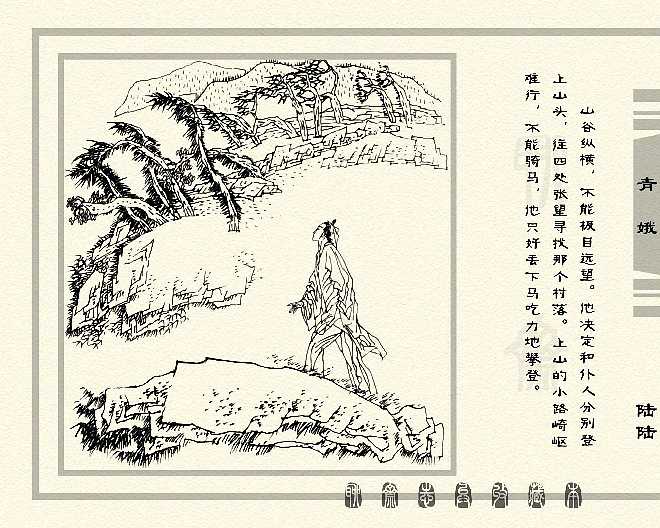 山谷纵横，不能极目远望。他决定和仆人分别登
上山头，往四处张望寻找那个村落。上山的小路崎岖
难行，不能骑马，他只好丢下马吃力地攀登。
青娥
陆陆
聊斋志异收藏本